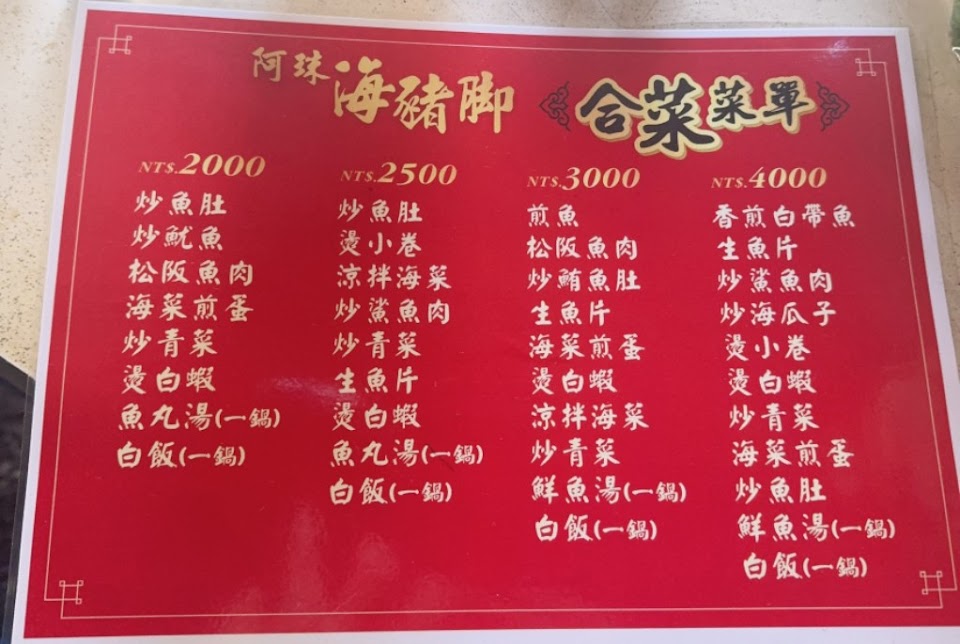 阿珠海豬腳 合菜菜單
NT$.2000
炒魚肚
炒魷魚
松阪魚肉
海菜煎蛋
炒青菜
燙白蝦
魚丸湯(一鍋)
白飯(一鍋)
NT$.2500
炒魚肚
燙小卷
涼拌海菜
炒鯊魚肉
炒青菜
生魚片
燙白蝦
魚丸湯(一鍋)
白飯(一鍋)
NT$.3000
煎魚
松阪魚肉
炒鮪魚肚
生魚片
海菜煎蛋
燙白蝦
涼拌海菜
炒青菜
鮮魚湯(一鍋)
白飯(一鍋)
NT$.4000
香煎白帶魚
生魚片
炒鯊魚肉
炒海瓜子
燙小卷
燙白蝦
炒青菜
海菜煎蛋
炒魚肚
鮮魚湯(一鍋)
白飯(一鍋)